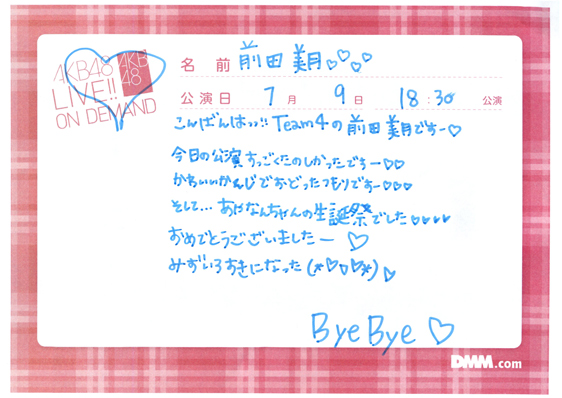 AKB48 AKB48
LIVE!!
ON DEMAND
名前 前田美月♡♡♡♡
公演日 7月 9日 18:30 公演
こんばんはっ!! Team4の前田美月ですー♡
今日の公演すっごくたのしかったですー♡♡
かわいいかんじでおどったつもりですー♡♡♡
そして... あやなんちゃんの生誕祭でした♡♡♡♡
おめでとうございましたー ♡
みずいろすきになった(*♡▽♡*)♡
Bye Bye ♡
DMM.com